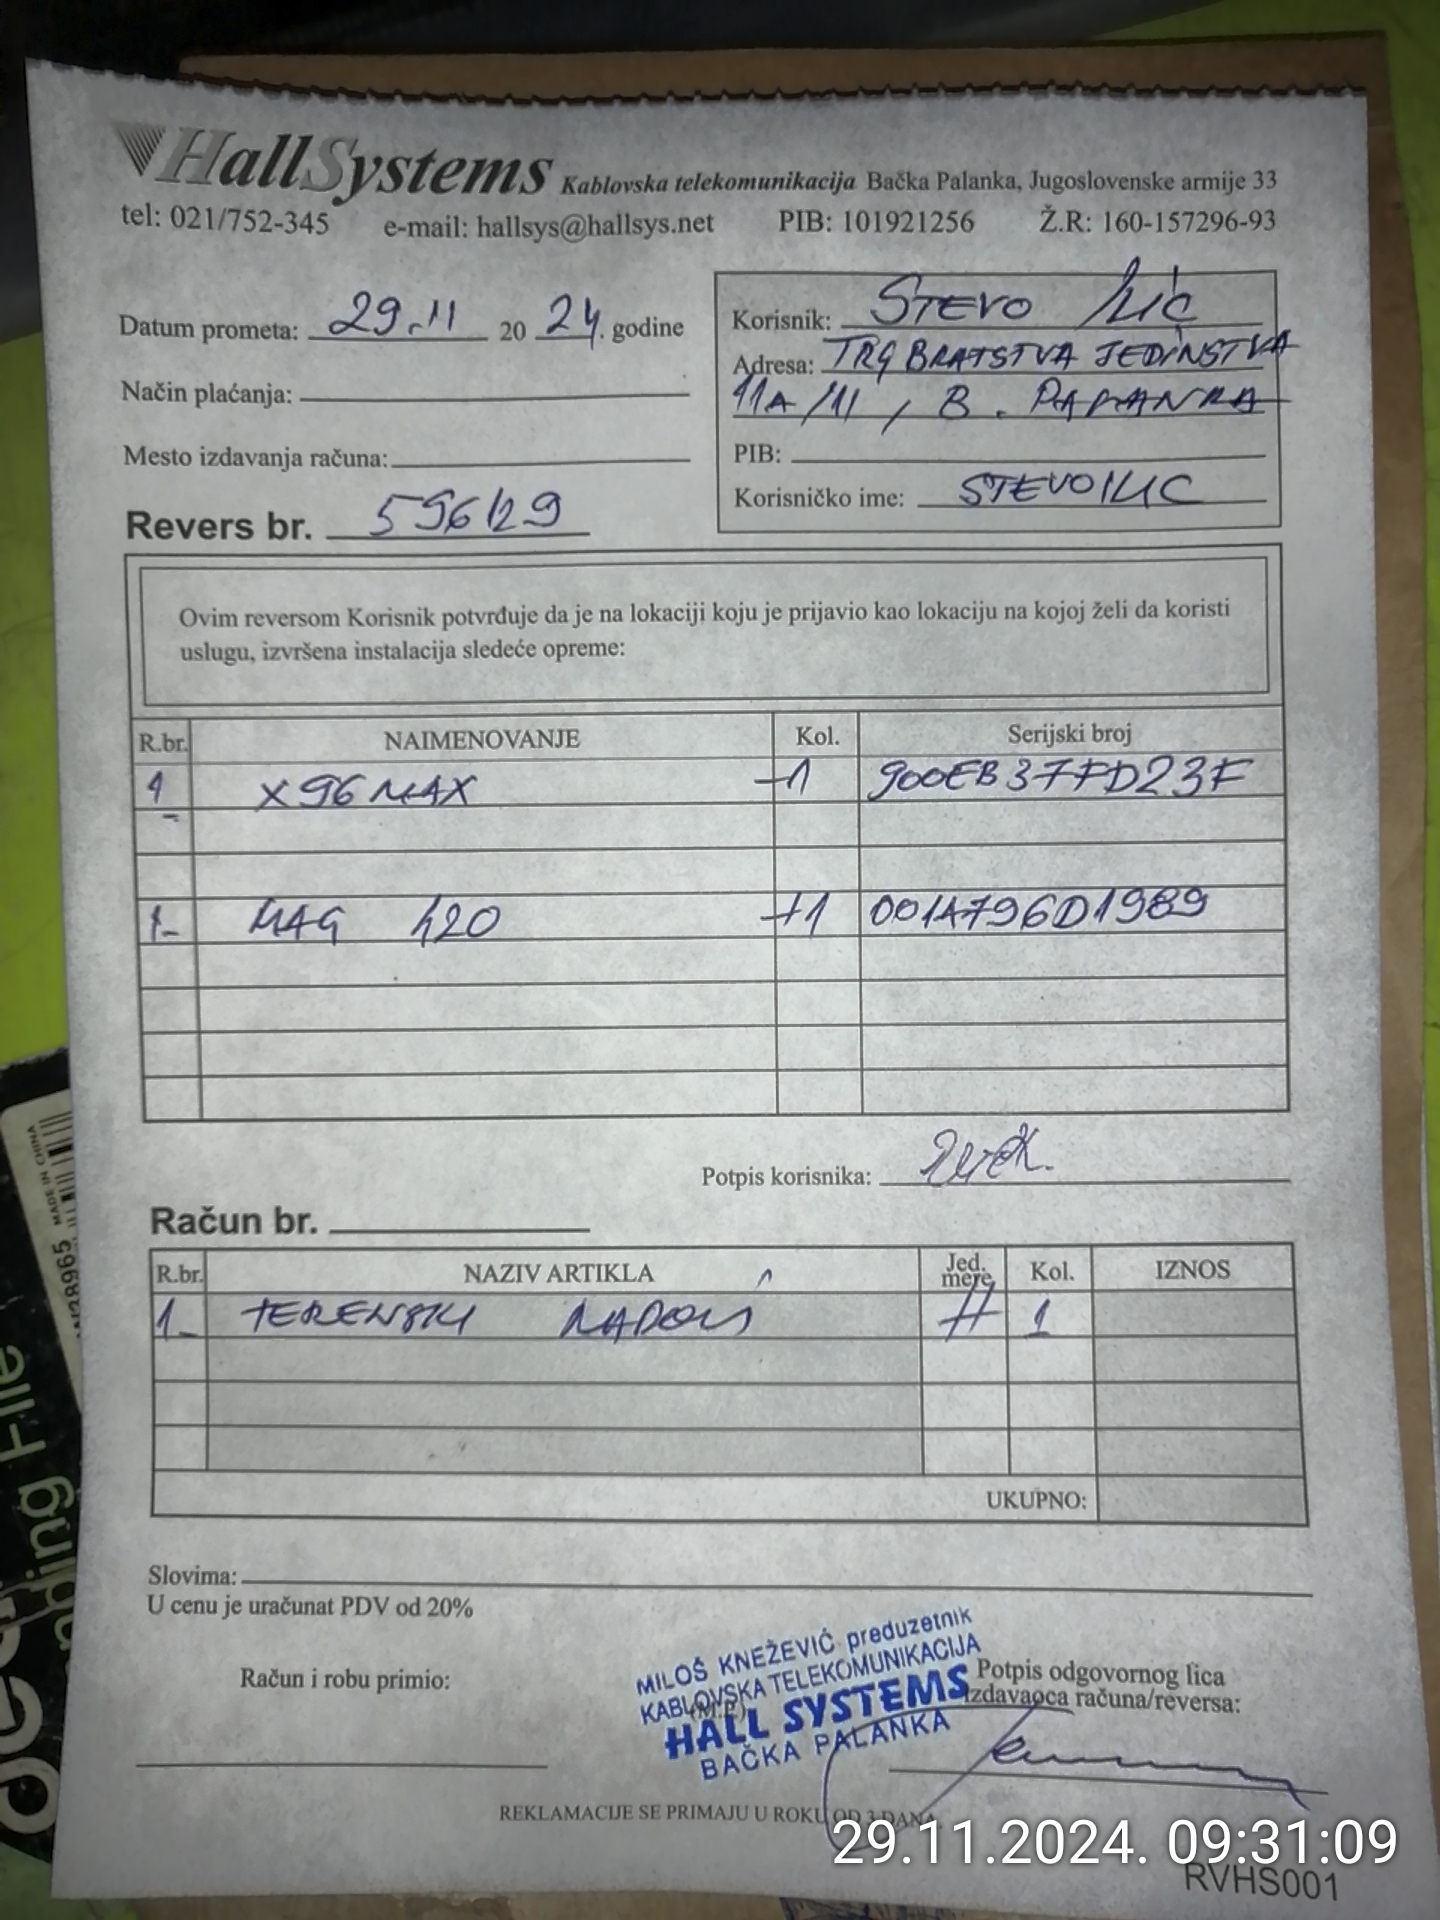 HallSystems Kablovska telekomunikacija Bačka Palanka, Jugoslovenske armije 33
tel: 021/752-345 e-mail: hallsys@hallsys.net PIB: 101921256 Ž.R: 160-157296-93
Datum prometa: 29.11 20 24. godine
Način plaćanja:
Mesto izdavanja računa:
Revers br. 596129
Korisnik: STEVO ILIĆ
Adresa: TRG BRATSTVA JEDINSTVA
11A/11, B. PALANKA
PIB:
Korisničko ime: STEVOILIC
Ovim reversom Korisnik potvrđuje da je na lokaciji koju je prijavio kao lokaciju na kojoj želi da koristi
uslugu, izvršena instalacija sledeće opreme:
R.br. NAIMENOVANJE Kol. Serijski broj
1 X96 MAX -1 900EB37FD23F
1- MAG 420 +1 001A796D1989
Potpis korisnika:
Račun br.
R.br. NAZIV ARTIKLA Jed. mere Kol. IZNOS
1- TERENSKI 1
UKUPNO:
Slovima:
U cenu je uračunat PDV od 20%
Račun i robu primio:
MILOŠ KNEŽEVIĆ preduzetnik
KABLOVSKA TELEKOMUNIKACIJA
(M.P.)
HALL SYSTEMS
BAČKA PALANKA
Potpis odgovornog lica
izdavaoca računa/reversa:
REKLAMACIJE SE PRIMAJU U ROKU OD 3 DANA.
29.11.2024. 09:31:09
RVHS001
MADE IN CHINA